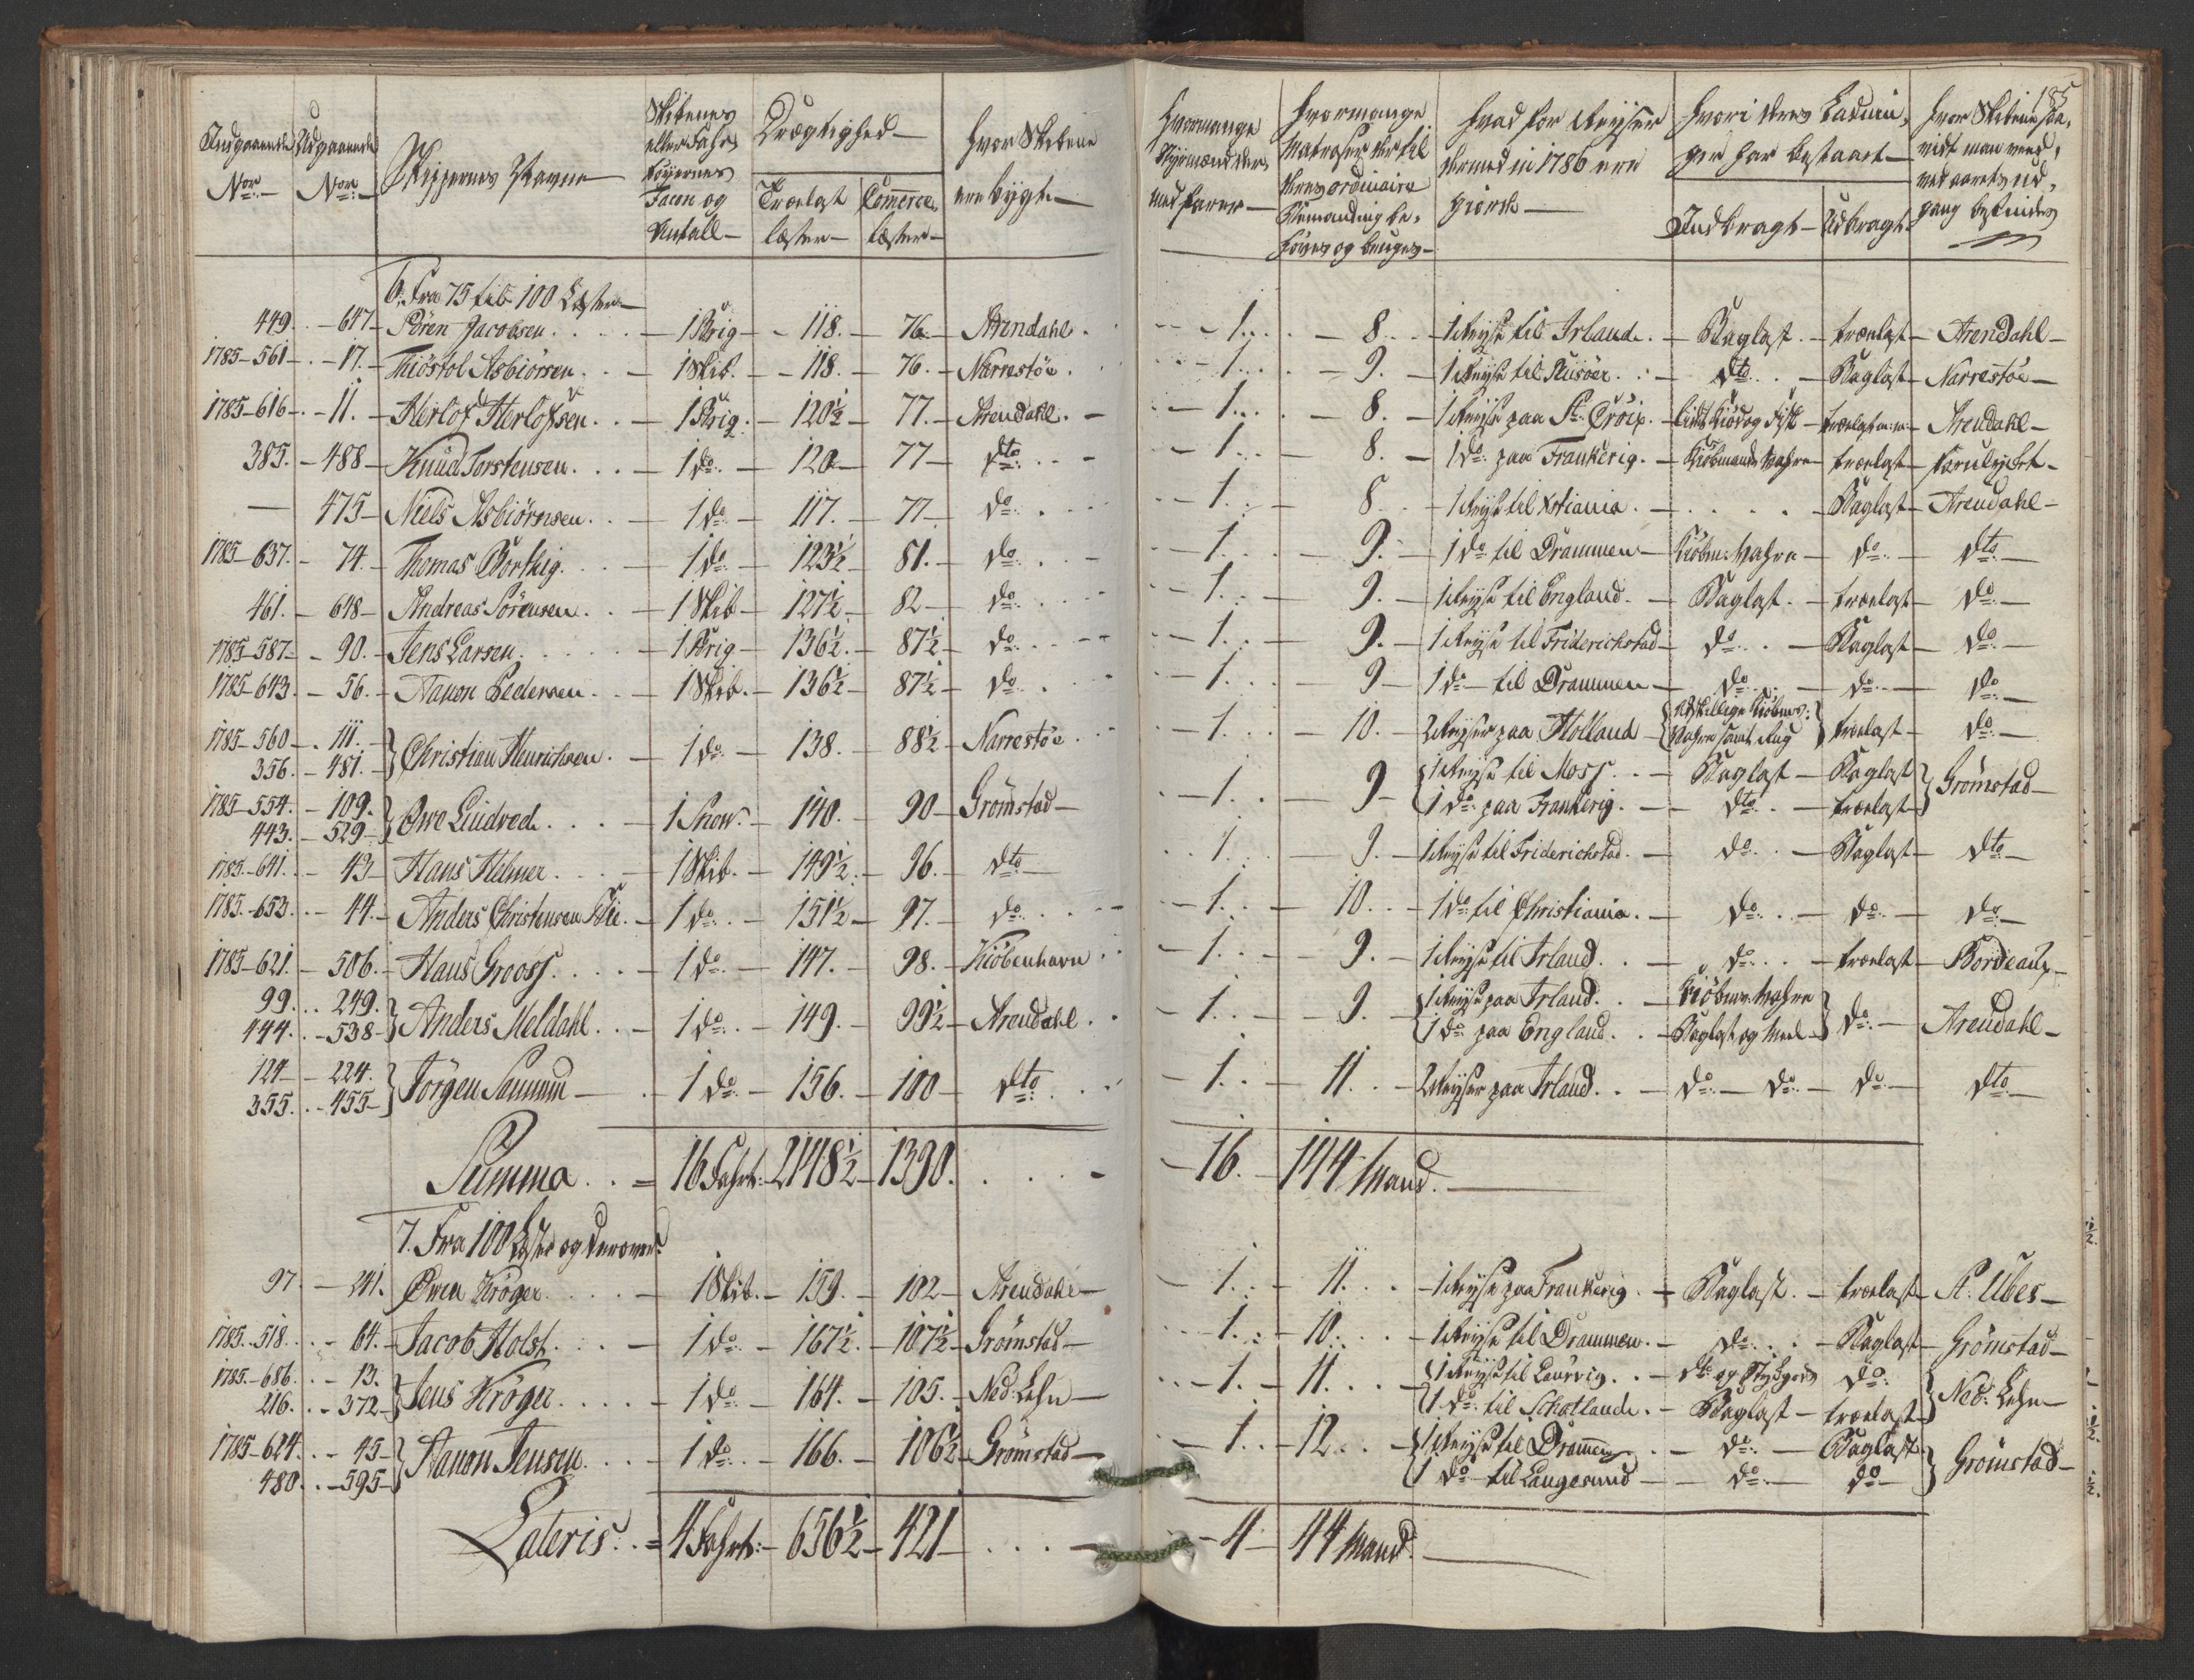 185
Indgaaende Udgaaende
Nor: Nor:
Skippernes Navne
Skibenes
eller Fahr-
tøyernes
Facon og
Antall
Drægtighed
Trælast
læster
Commerce
læster
Hvor Skibene
ere bygte
Hvormange
Styrmænd der-
med farer
Hvormange
Matroser der til
deres ordinaire
Bemanding be-
høves og bruges
Hvad for Reyser
dermed in 1786 ere
giorde
Hvori deres Ladnin-
ger har bestaaet
Indbragt Udbragt
Hvor Skibene saa-
vidt man veed,
ved aarets ud-
gang befindes
6. Fra 75 til 100 Læster
449. - 647 - Sören Jacobsen - 1 Brig - 118. - 76 - Arendahl - 1. - 8. - 1 Reyse til Irland - Baglast - trælast - Arendahl
1785-561 - 17. - Thiöstol Asbiörnsen - 1 Skib. - 118. - 76. - Narrestöe - 1. - 9. - 1 Reyse til Riisöer - dto - Baglast - Narrestöe
1785-616 - 11. - Herlof Herlofsen - 1 Brig. - 120½ - 77. - Arendahl - 1. - 8. - 1 Reyse paa St. Croix - Kiöd og Fisk - trælast m: m: - Arendahl
385. - 488 - Knud Torstensen - 1 do - 120 - 77 - dto - 1. - 8. - 1 do paa Frankerig - Kiöbmands Vahre - trælast - forulykket
— 475 - Niels Asbiörnsen - 1 do - 117. - 77 - do - 1. - 8. - 1 Reyse til Xstiania - Baglast - Arendahl
1785-637. - 74. - Thomas Borthig - 1 do - 123½ - 81. - do - 1. - 9. - 1 do til Drammen - Kiöbm: Vahre - do - dto
461. - 648 - Andreas Sörensen - 1 Skib - 127½ - 82 - do - 1. - 9. - 1 Reyse til England - Baglast - trælast - do
1785-587 - 90. - Jens Larsen - 1 Brig - 136½ - 87½ - do - 1. - 9. - 1 Reyse til Friderichstad - do - Baglast - do
1785-643. - 56. - Nanon Pedersen - 1 Skib. - 136½ - 87½ - do - 1. - 9 - 1 do til Drammen - do - do - do
1785-560 - 111. - Christian Henrichsen - 1 do - 138. - 88½ - Narrestöe - 1. - 10. - 2 Reyser paa Holland - adskillige Kiöbms: - trælast - do
356. - 481. - Vahre samt Rug
1785-554. - 109. - Owe Lindved - 1 Snow. - 140. - 90 - Gromstad - 1. - 9 - 1 Reyse til Moss - Baglast - Baglast - Gromstad
443. - 529 - 1 do paa Frankerig - dto - trælast
1785-641. - 43 - Hans Helmer - 1 Skib. - 149½ - 96. - dto - 1. - 9. - 1 Reyse til Friderichstad - do - Baglast - dto
1785-653. - 44. - Anders Christensen - 1 do - 151½ - 97. - do - 1. - 10. - 1 do til Christiania - do - do - do
1785-621. - 506. - Hans Grooss - 1 do - 147. - 98. - Kiöbenhavn - 1. - 9. - 1 Reyse til Irland - do - trælast - Bordeaux
99. - 249. - Anders Meldahl - 1 do - 149. - 99½ - Arendahl - 1. - 9. - 1 Reyse paa Irland - Kiöbm: Vahre - do - Arendahl
444. - 538 - 1 do paa England - Baglast og Meel
124 - 224. - Jörgen Sammun - 1 do - 156. - 100 - dto - 1. - 11. - 2 Reyser paa Irland - do - do - do - dto
355. - 455
Summa = 16 Fahrt: 2148½ - 1390. - 16. - 144 Mand.
7. Fra 100 Læster og derover
97. - 241. Owen Kröger - 1 Skib. - 159. - 102 - Arendahl - 1. - 11. - 1 Reyse paa Frankerig - Baglast - trælast - St. Ubes
1785-518. - 64. - Jacob Holst - 1 do - 167½ - 107½ - Gromstad - 1. - 10. - 1 Reyse til Drammen - do - Baglast - Gromstad
1785-686. - 13. - Jens Kröger - 1 do - 164. - 105. - Ned: Lehn - 1. - 11. - 1 Reyse til Laurvig - do og Stÿkgods - do - Ned: Lehn
216. - 372 - 1 do til Schotland - Baglast - trælast
1785-624. - 45 - Nanon Jensen - 1 do - 166. - 106½ - Gromstad - 1. - 12. - 1 Reyse til Drammen - do - Baglast - Gromstad
480. - 595 - 1 do til Langesund - do - do
Lateris = 4 Fahrt: - 656½ - 421 - 4 - 44 Mand.